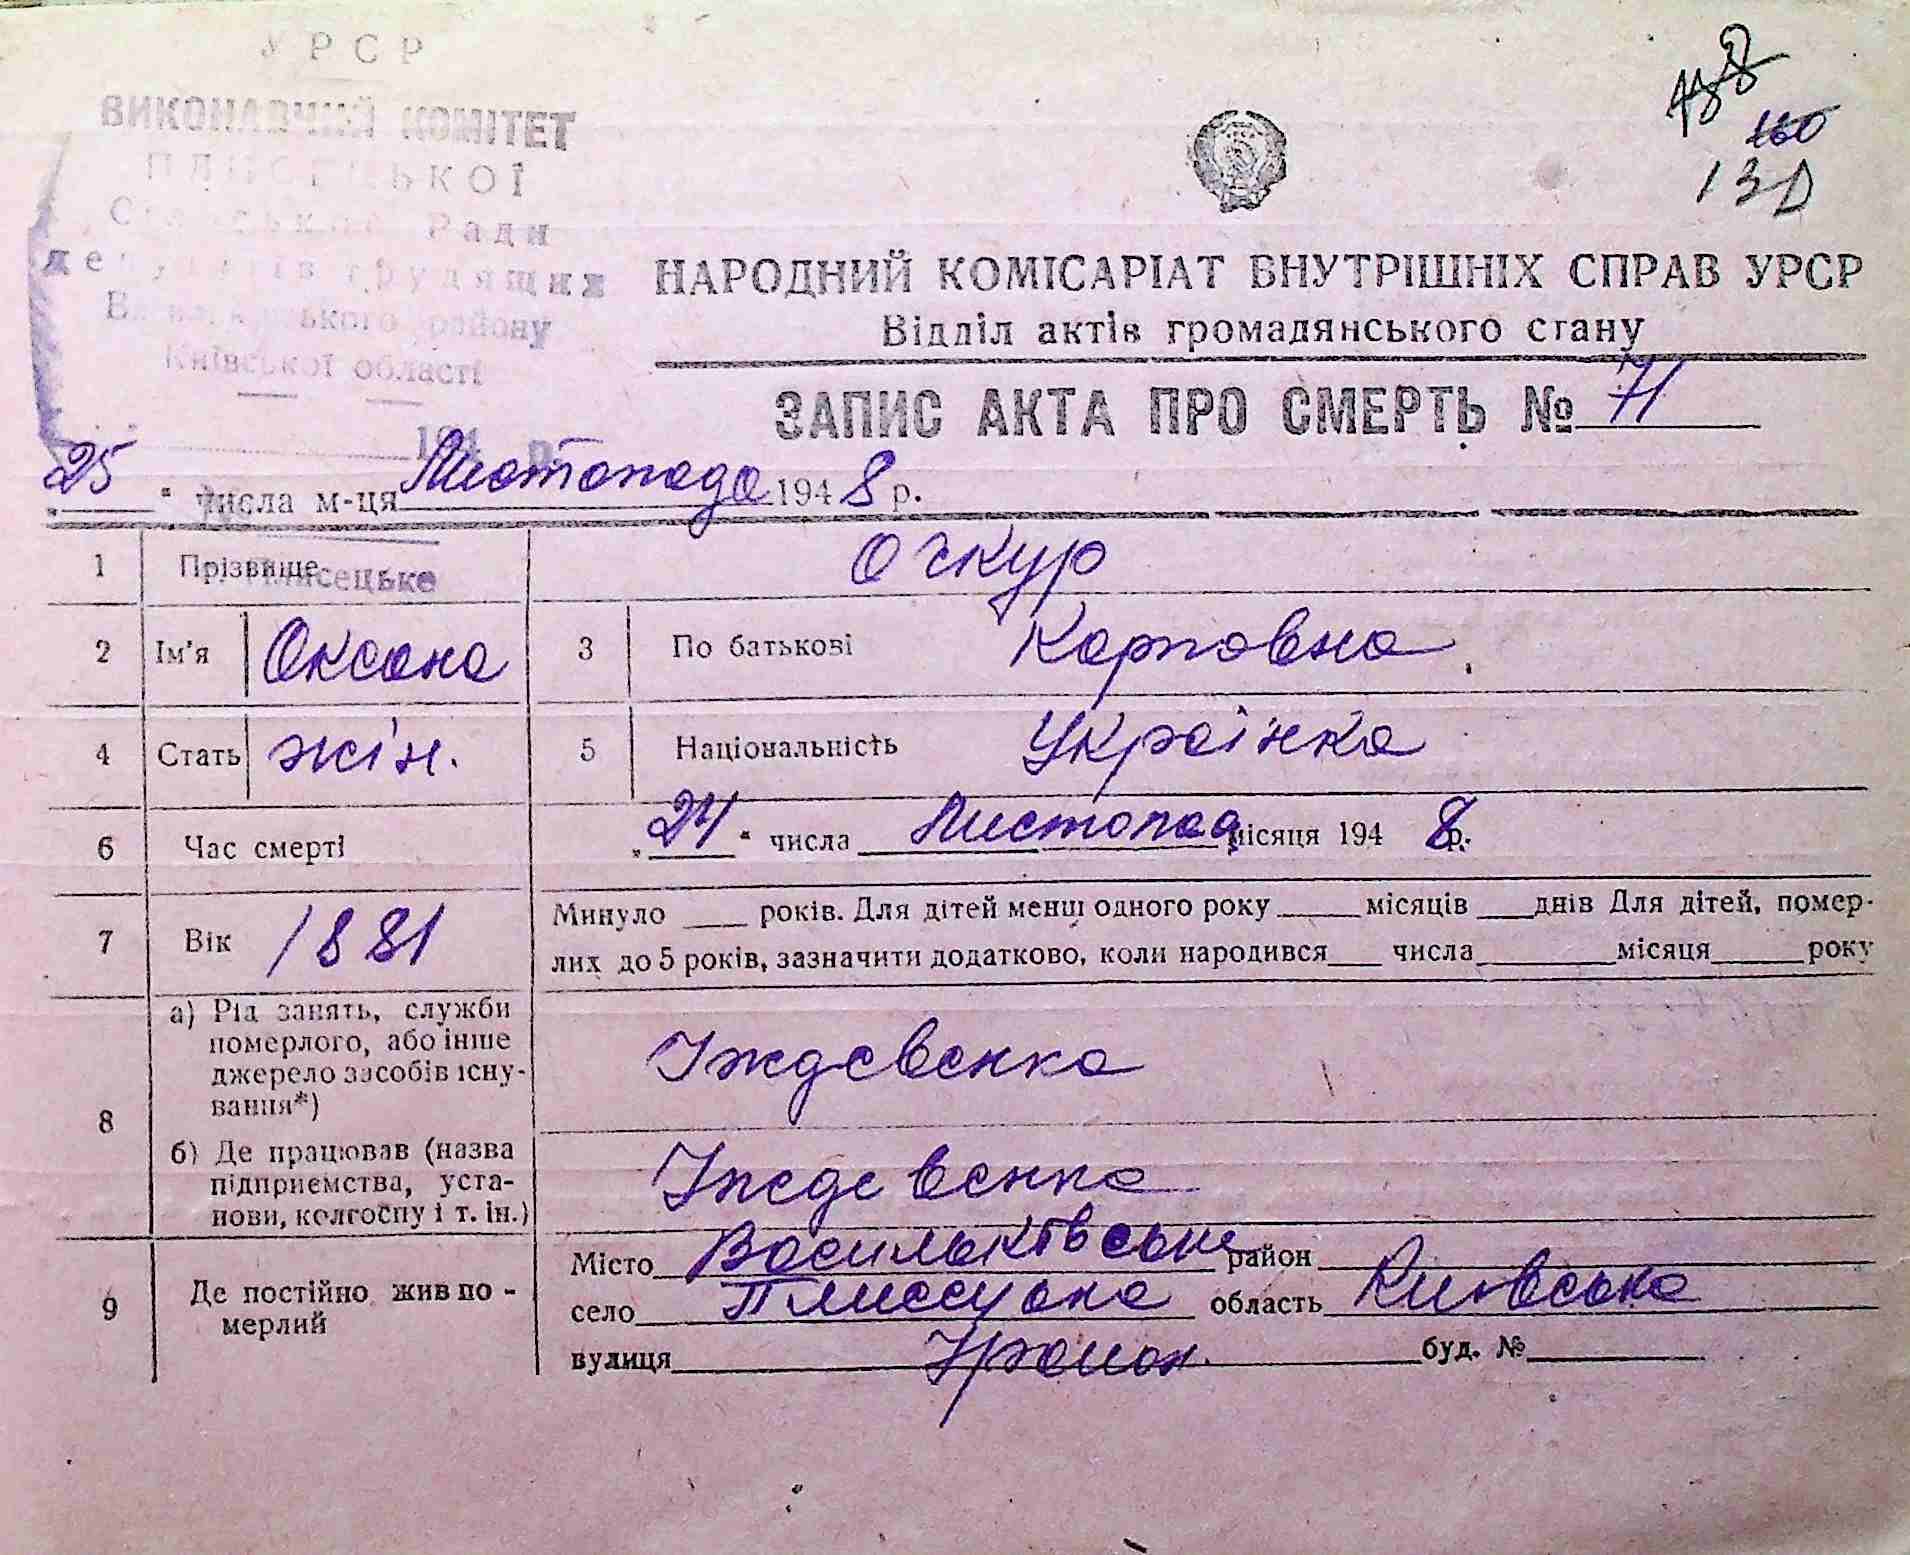 УРСР
ВИКОНАВЧИЙ КОМІТЕТ
ПЛИСЕЦЬКОЇ
Сільської Ради
депутатів трудящих
Васильківського району
Київської області
160
130
НАРОДНИЙ КОМІСАРІАТ ВНУТРІШНІХ СПРАВ УРСР
Відділ актів громадянського стану
ЗАПИС АКТА ПРО СМЕРТЬ № 71
194 р.
„25“ числа м-ця Листопада 1948 р.
1 Прізвище Очкур
Плисецьке
2 Ім'я Оксана 3 По батькові Карповна
4 Стать жін. 5 Національність Українка
6 Час смерті „24“ числа Листопад місяця 1948 р.
7 Вік 1881 Минуло ___ років. Для дітей менш одного року ___ місяців ___ днів Для дітей, помер-
лих до 5 років, зазначити додатково, коли народився ___ числа ___ місяця ___ року
8 а) Рід занять, служби
померлого, або інше
джерело засобів існу-
вання*)
Іждевенка
б) Де працював (назва
підприємства, уста-
нови, колгоспу і т. ін.)
Іждевенка
9 Де постійно жив по-
мерлий
Місто Васильківське район
село область Киівська
вулиця буд. №